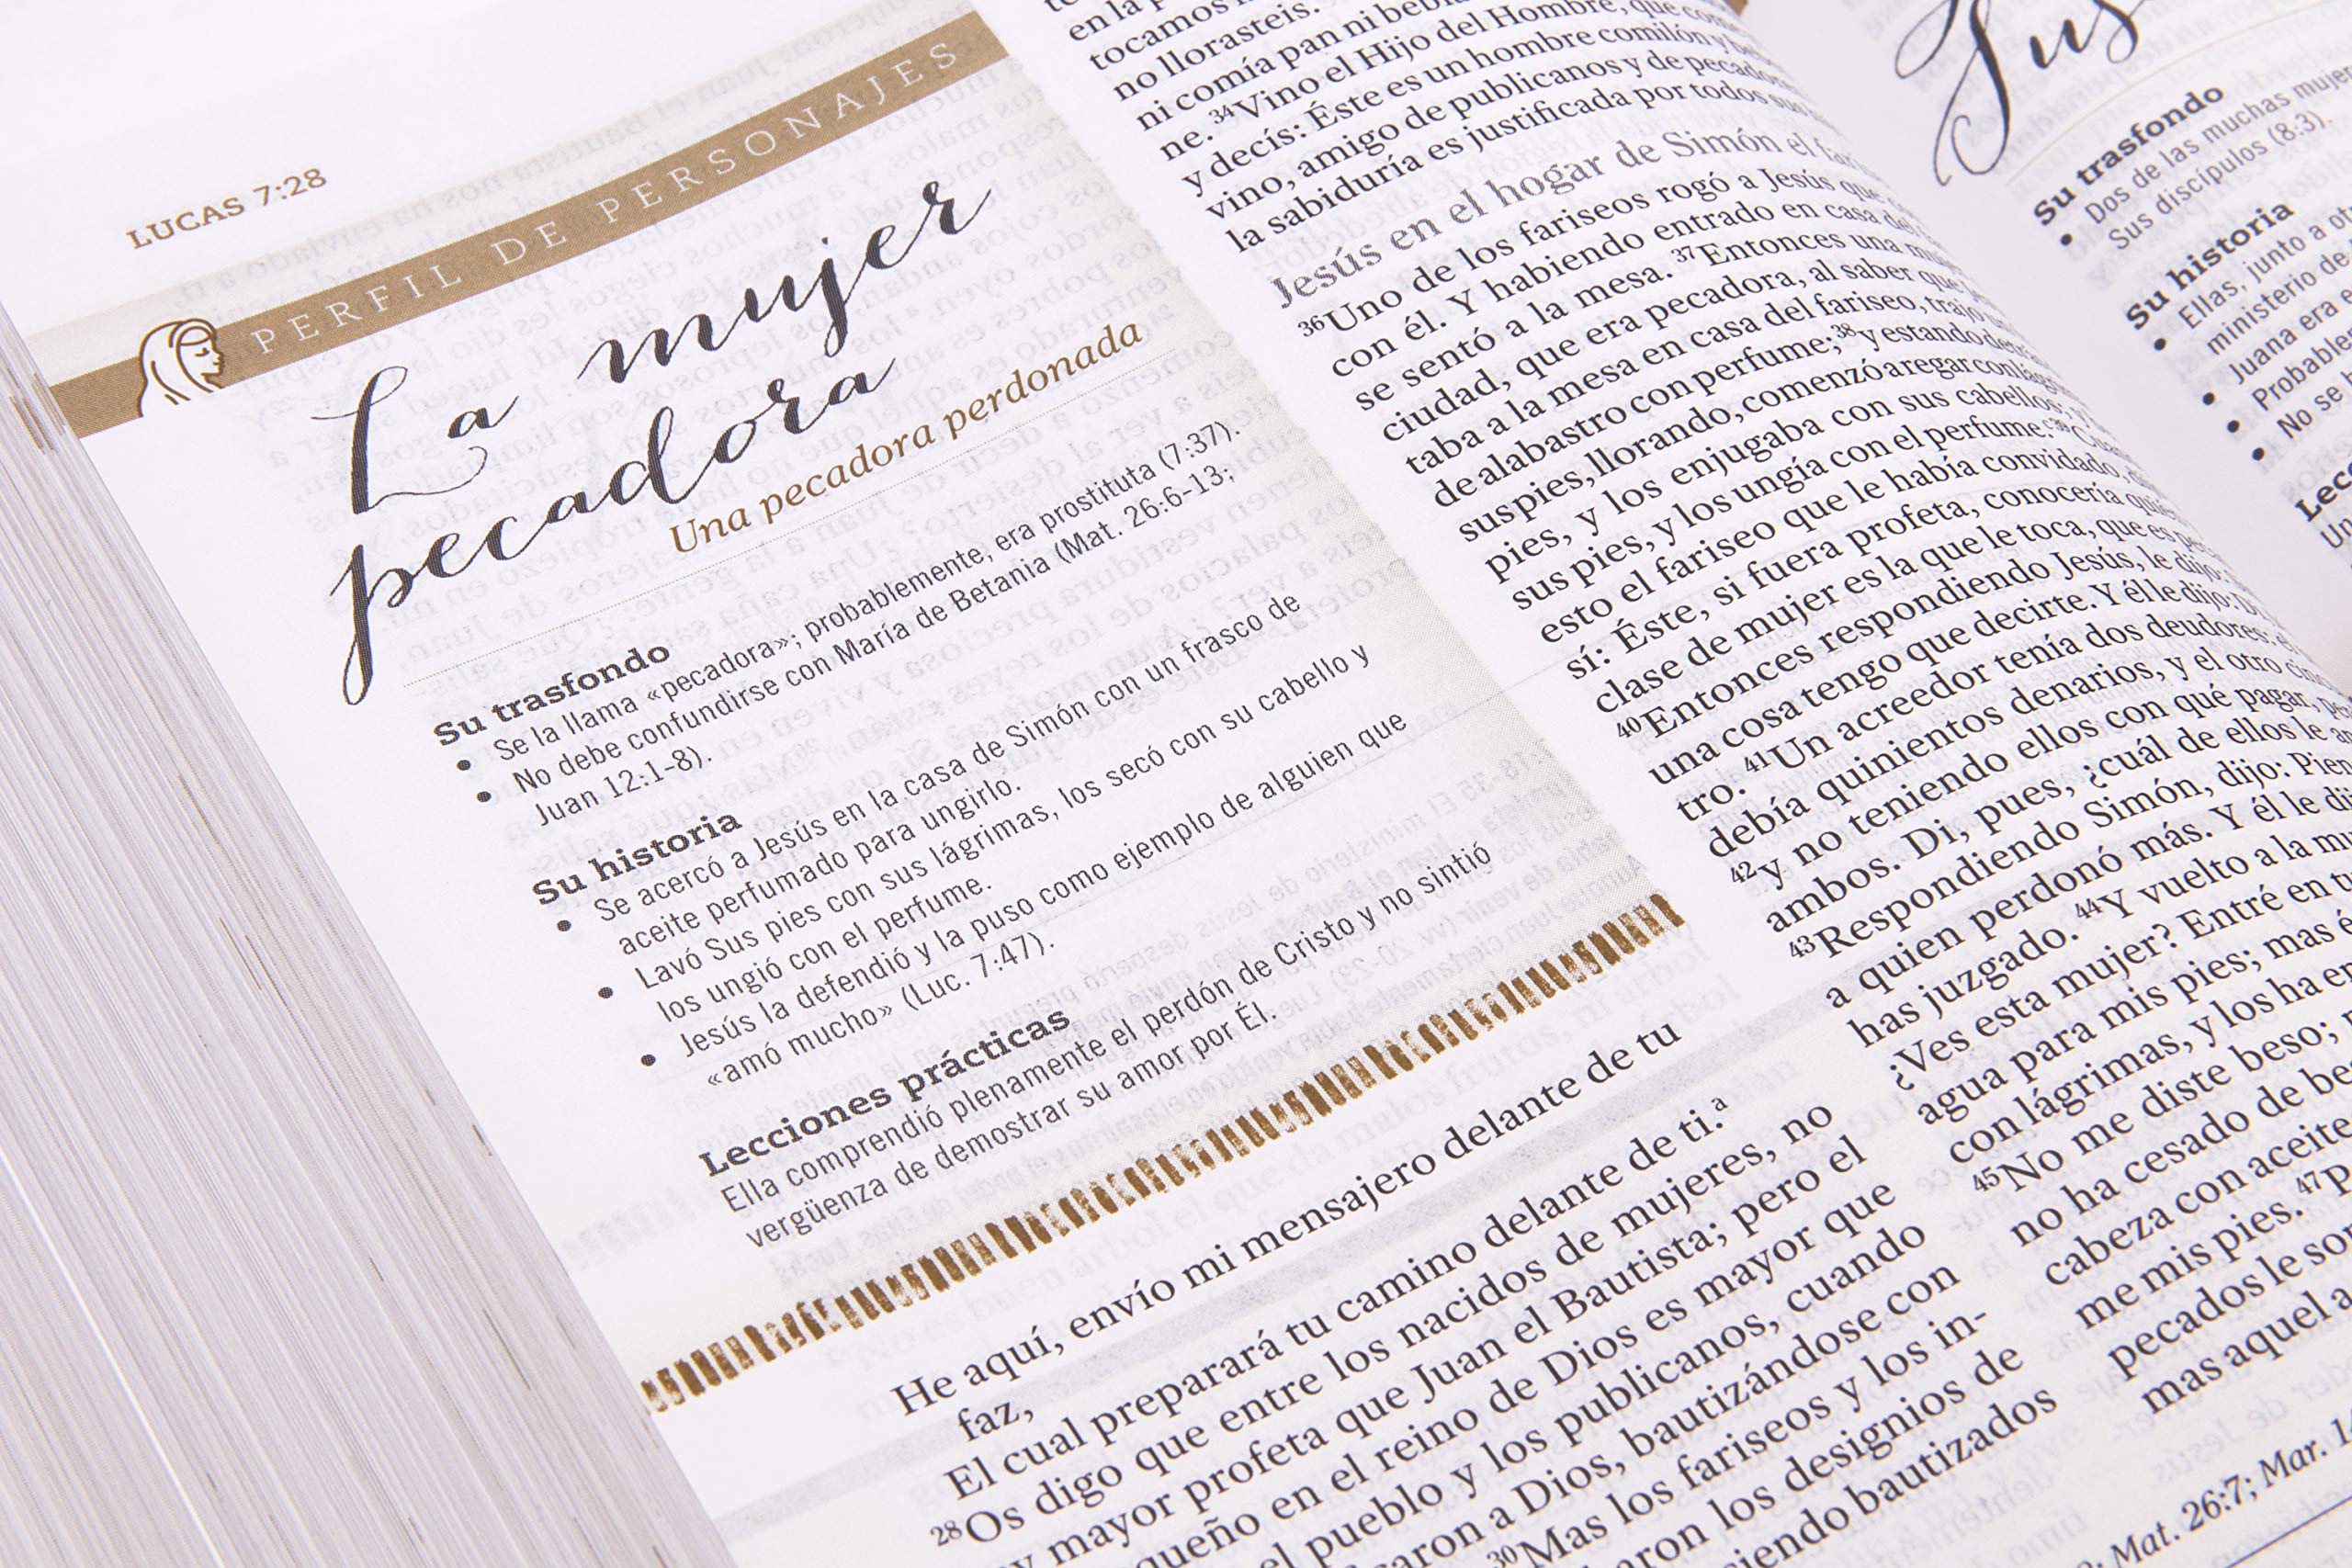 LUCAS 7:28
PERFIL DE PERSONAJES
La mujer
pecadora
Una pecadora perdonada
Su trasfondo
• Se la llama «pecadora»; probablemente, era prostituta (7:37).
• No debe confundirse con María de Betania (Mat. 26:6-13;
Juan 12:1-8).
Su historia
• Se acercó a Jesús en la casa de Simón con un frasco de
aceite perfumado para ungirlo.
• Lavó Sus pies con sus lágrimas, los secó con su cabello y
los ungió con el perfume.
• Jesús la defendió y la puso como ejemplo de alguien que
«amó mucho» (Luc. 7:47).
Lecciones prácticas
Ella comprendió plenamente el perdón de Cristo y no sintió
vergüenza de demostrar su amor por Él.
He aquí, envío mi mensajero delante de tu
faz,
El cual preparará tu camino delante de ti.ª
28Os digo que entre los nacidos de mujeres, no
mayor profeta que Juan el Bautista; pero el
en el reino de Dios es mayor que
el pueblo y los publicanos, cuando
a Dios, bautizándose con
30Mas los fariseos y los in-
los designios de
bautizados
en la
tocamos
no llorasteis.
ni comía pan ni
ne. 34Vino el Hijo del Hombre, que
y decís: Éste es un hombre comilón y
vino, amigo de publicanos y de
la sabiduría es justificada por todos
Jesús en el hogar de Simón el
36Uno de los fariseos rogó a Jesús que
con él. Y habiendo entrado en casa
se sentó a la mesa. 37Entonces una
ciudad, que era pecadora, al saber que
taba a la mesa en casa del fariseo, trajo
de alabastro con perfume; 38y estando
sus pies, llorando, comenzó a regar con
pies, y los enjugaba con sus cabellos;
sus pies, y los ungía con el perfume.
esto el fariseo que le había convidado,
sí: Éste, si fuera profeta, conocería
clase de mujer es la que le toca, que es
40Entonces respondiendo Jesús, le dijo:
una cosa tengo que decirte. Y él le dijo:
tro. 41Un acreedor tenía dos deudores:
debía quinientos denarios, y el otro
42y no teniendo ellos con qué pagar,
ambos. Di, pues, ¿cuál de ellos le
43Respondiendo Simón, dijo:
a quien perdonó más. Y él le
has juzgado. 44Y vuelto a la
¿Ves esta mujer? Entré en
agua para mis pies; mas
con lágrimas, y los ha
45No me diste beso;
no ha cesado de
cabeza con aceite
me mis pies. 47
pecados le
mas aquel
Mat. 26:7; Mar.
Su trasfondo
• Dos de las muchas
Sus discípulos (8:3).
Su historia
• Ellas, junto a
ministerio de
• Juana era
•
• No se